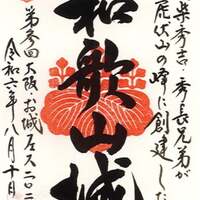 柴秀吉・秀長兄弟が
虎伏山の峰に創建した
和歌山城
第参回大阪お城フェス二〇二
令和六年八月十日